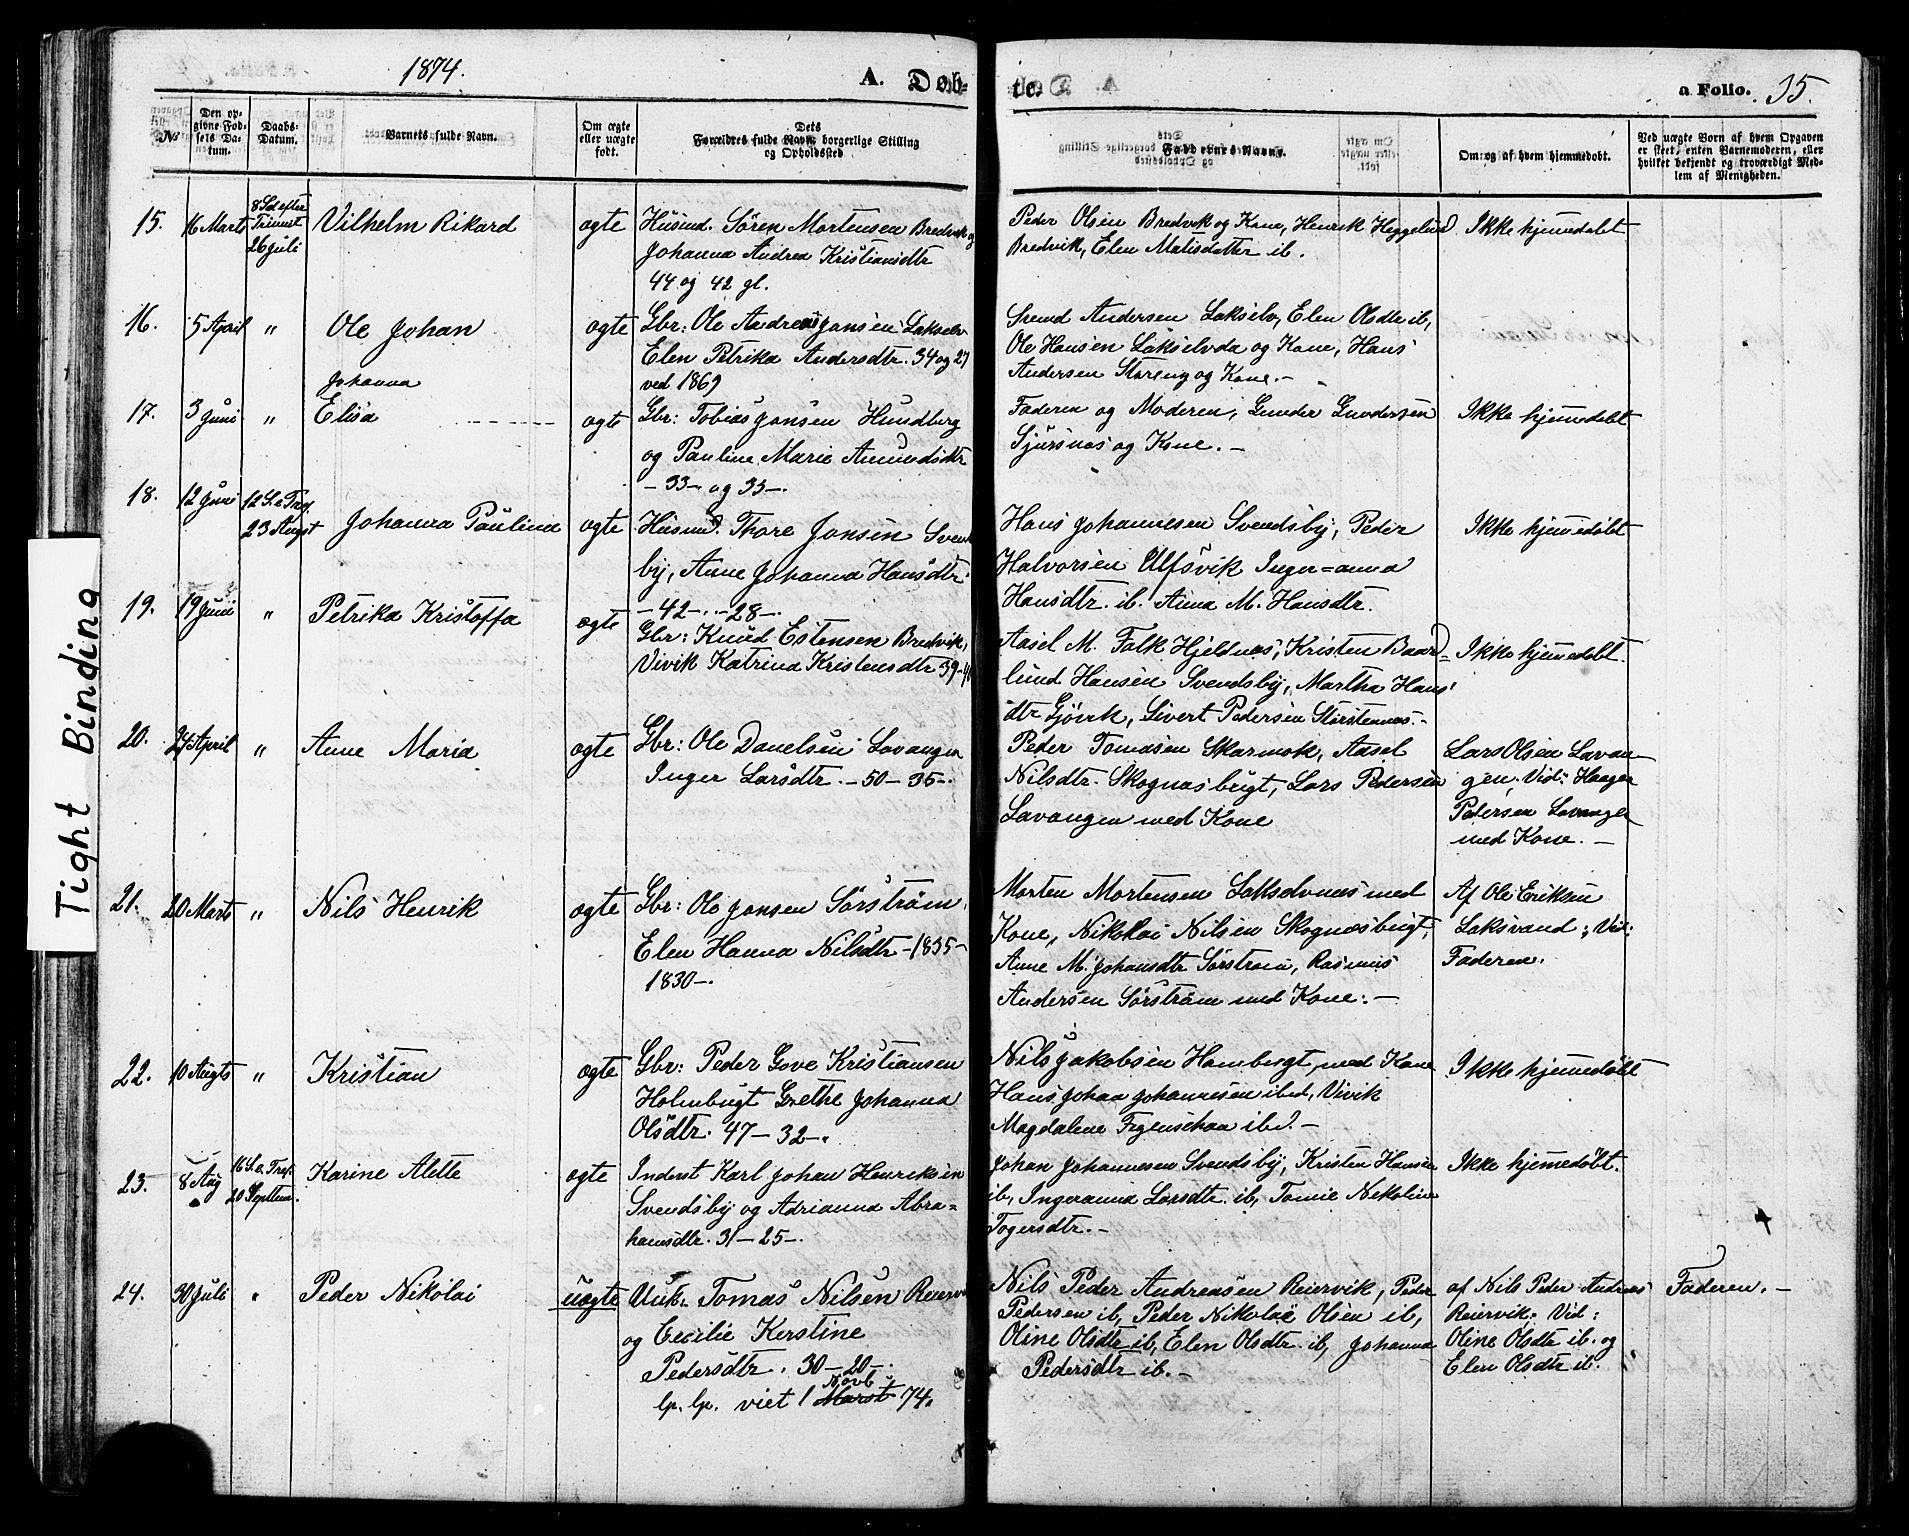 1874.
A. Døb-
te.
a Folio. 35.
No
Den op-
givne Fød-
sels Da-
tum.
Daabs-
Datum.
Barnets fulde Navn.
Om ægte
eller uægte
født.
Dets
Forældres fulde Navn, borgerlige Stilling
og Opholdssted
Faddernes Navne.
Om og af hvem hjemmedøbt.
Ved uægte Børn af hvem Opgaven
er skeet, enten Barnemoderen, eller
hvilket bekjendt og troværdigt Med-
lem af Menigheden.
Tight Binding
15.
16 Marts
8 Sd efter
Trinit
26 juli
Vilhelm Rikard
ægte
Husmd. Sören Mortensen Bredvik og
Johanna Andrea Kristiansdtr
44 og 42 gl.
Peder Olsen Bredvik og Kone, Henrik Heggelund
Bredvik, Elen Matisdatter ib.
Ikke hjemedøbt
16.
5 April
"
Ole Johan
ægte
Gbr: Ole Andreas Jansen Lakselv
Elen Petrika Andersdtr. 34 og 27
ved 1869
Svend Andersen Lakselv, Elen Olsdtr ib,
Ole Hansen Lakselvda og Kone, Hans
Andersen Storeng og Kone.-
17.
3 Juni
"
Johanna
Elisa
ægte
Gbr: Tobias Jansen Hundberg
og Pauline Marie Amundsdtr
- 33- og 33-.
Faderen og Moderen, Gunder Gundersen
Sjursnæs og Kone. -
Ikke hjemedøbt
18.
12 Juni
12 S. e. Tref.
23 Augt
Johanna Paulina
ægte
Husmd. Thore Jonsen Svens
by, Anne Johanna Hansdtr.
- 42 -..- 28 -.
Hans Johannesen Svendsby, Peder
Halvorsen Ulfsvik Inger=anna
Hansdtr. ib. Anna M. Hansdtr.
Ikke hjemedøbt
19.
19 Juni
"
Petrika Kristoffa
ægte
Gbr: Knud Estensen Bredvik,
Vivik Katrina Kristensdtr 39-40
Aasel M. Falk Hjeldnæs, Kristen Baard=
lund Hansen Svendsby, Martha Hans
dtr Gjövik, Sivert Pedersen Storstennæs.-
Ikke hjemedøbt.
20.
24 April
"
Anne Maria
ægte
Gbr: Ole Danelsen Lavangen
Inger Larsdtr. - 50 - 35 -.
Peder Tomasen Skarmok, Aasel
Nilsdtr. Skognæsbugt, Lars Pedersen
Lavangen med Kone
Lars Olsen Lavan
gen, Vid: Haagen
Pedersen Lavangen
med Kone. -
21.
20 Marts
"
Nils Henrik
ægte
Gbr: Ole Jansen Sörström,
Elen Hanna Nilsdtr - 1835 -
1830 -.
Morten Mortensen Lakselvnæs med
Kone, Nikolai Nilsen Skognæsbugt,
Anne M. Johansdtr Sörström, Rasmus
Andersen Sörström med Kone. -
Af Ole Eriksen
Laksvand; Vid:
Faderen.
22.
10 Augts
"
Kristian
ægte
Gbr: Peder Gove Kristiansen
Holmbugt Grethe Johanna
Olsdtr. 47 - 32 -.
Nils Jakobsen Hambugt med Kone
Hans Johan Johannesen ibed, Vivik
Magdalene Figenschau ibd. -
Ikke hjemmedøbt
23.
8 Aug
16 S. e. Tref.
20 Septem.
Karine Alette
ægte
Inderst Karl Johan Henriksen
Svendsby og Adrianna Abra=
hamsdtr. 31 - 25 -.
Johan Johannesen Svendsby, Kristen Hansen
ib, Ingeranna Larsdtr. ib, Tomie Nikoline
Togersdtr. -
Ikke hjemedøbt.
24.
30 Juli
"
Peder Nikolai
uægte
Unk. Tomas Nilsen Reiervik
og Cecilie Kerstine
Pedersdtr. 30 - 20 -.
Novb
lp. lp. viet 1 Marst 74.
Nils Peder Andreasen Reiervik, Peder
Pedersen ib, Peder Nikolai Olsen ib,
Oline Olsdtr ib, Elen Olsdtr. ib, Johanna
Pedersdtr ib. -
af Nils Peder Andreas
Reiervik. Vid:
Oline Olsdtr ib. og
Elen Olsdtr ib.
Faderen. -